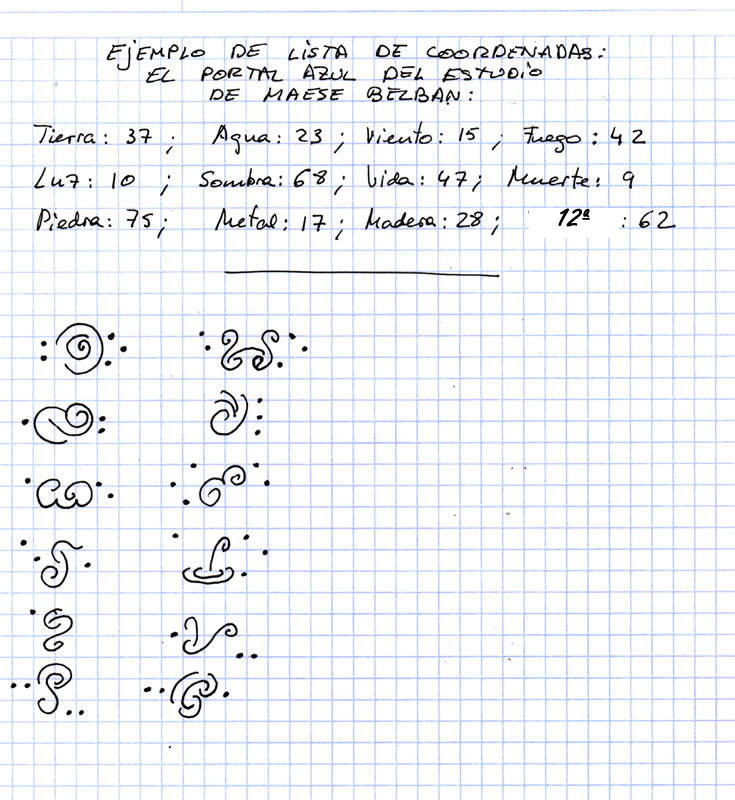 EJEMPLO DE LISTA DE COORDENADAS:
EL PORTAL AZUL DEL ESTUDIO
DE MAESE BELBAN:
Tierra: 37; Agua: 23; Viento: 15; Fuego: 42
Luz: 10; Sombra: 68; Vida: 47; Muerte: 9
Piedra: 75; Metal: 17; Madera: 28; 12ª: 62